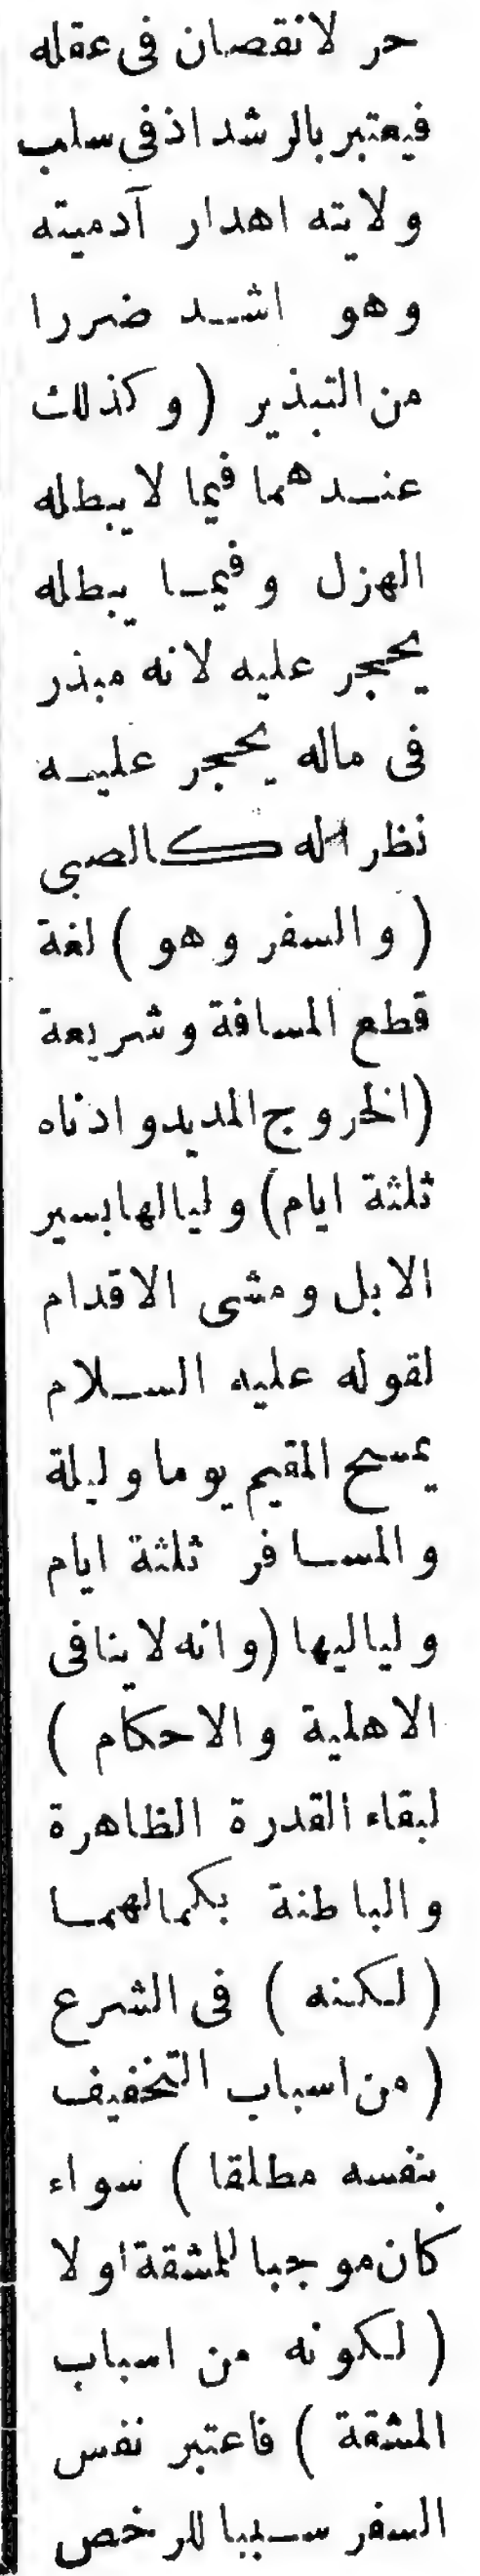 حر لانقصان فى عقله
فيعتبر بالرشد اذ فى سلب
ولايته اهدار آدميته
وهو اشد ضررا
من التبذير ( وكذلك
عندهما فيما لا يبطله
الهزل وفيما يبطله
يحجر عليه لانه مبذر
فى ماله يحجر عليه
نظرا له كالصبى
( والسفر وهو ) لغة
قطع المسافة وشريعة
(الخروج المديد وادناه
ثلثة ايام) ولياليها بسير
الابل ومشى الاقدام
لقوله عليه السلام
يمسح المقيم يوما وليلة
والمسافر ثلثة ايام
ولياليها (وانه لا ينافى
الاهلية والاحكام )
لبقاء القدرة الظاهرة
والباطنة بكمالهما
( لكنه ) فى الشرع
( من اسباب التخفيف
بنفسه مطلقا ) سواء
كان موجبا للمشقة اولا
( لكونه من اسباب
المشقة ) فاعتبر نفس
السفر سببا للرخص